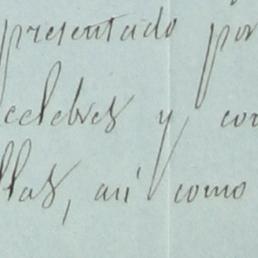 presentado por
celebres y con
llas, asi como